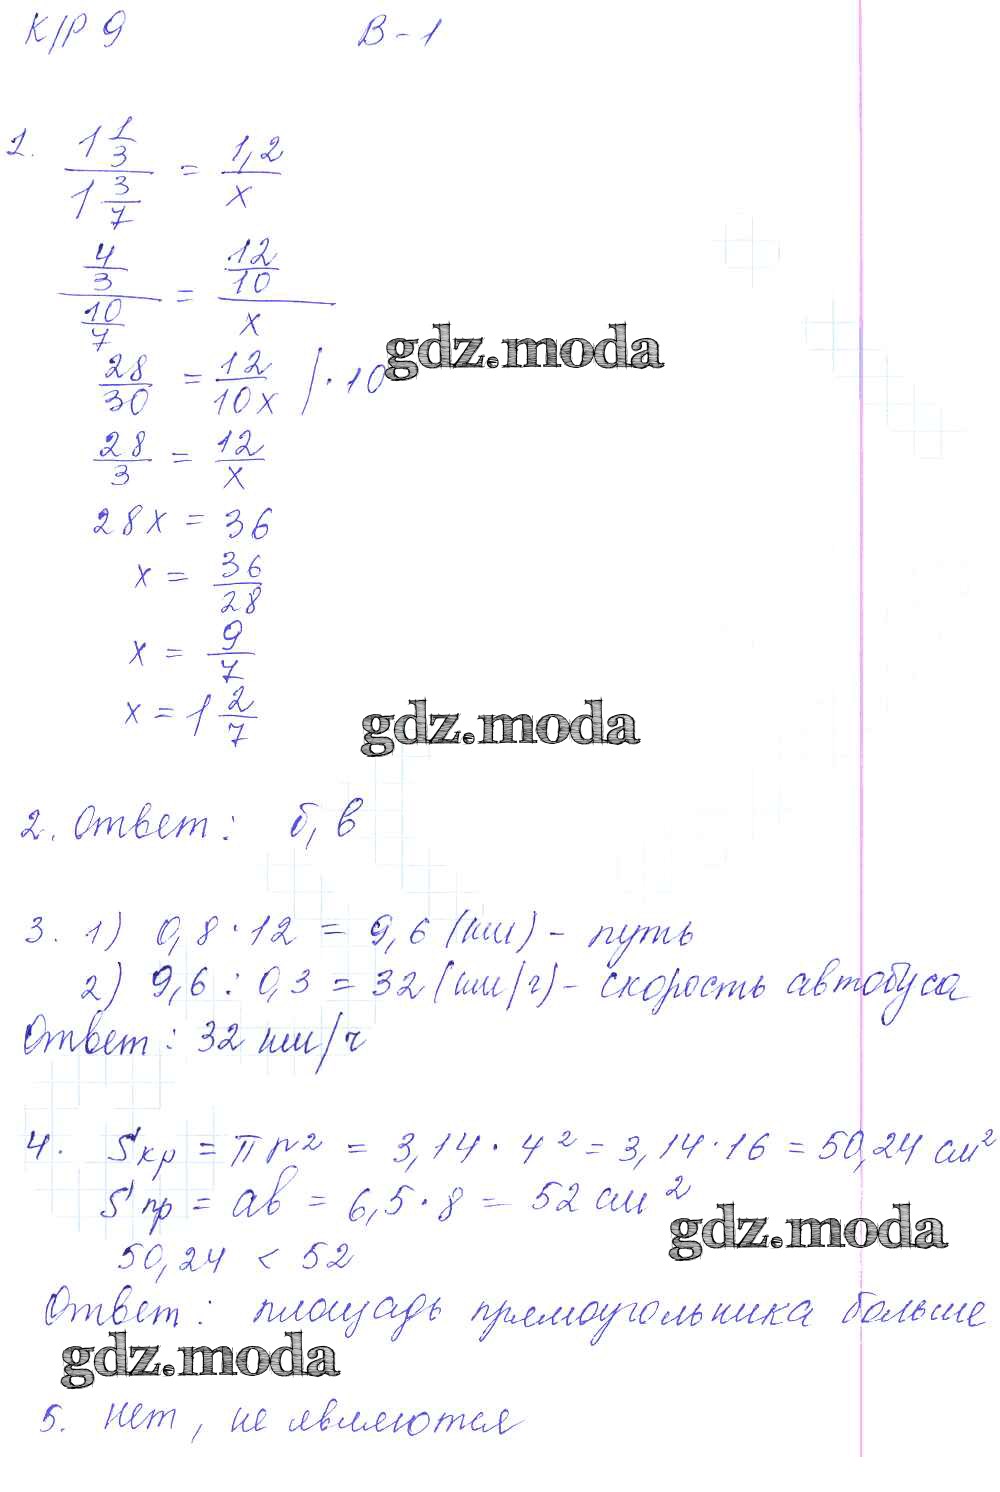 К/Р 9 В-1
1. 1 1/3 / 1 3/7 = 1,2 / x
4/3 / 10/7 = 12/10 / x
28/30 = 12/10x | · 10
gdz.moda
28/3 = 12/x
28x = 36
x = 36/28
x = 9/7
x = 1 2/7
gdz.moda
2. Ответ: б, в
3. 1) 0,8 · 12 = 9,6 (км) - путь
2) 9,6 : 0,3 = 32 (км/ч) - скорость автобуса
Ответ: 32 км/ч
4. Sкр = πr² = 3,14 · 4² = 3,14 · 16 = 50,24 см²
Sпр = ав = 6,5 · 8 = 52 см²
gdz.moda
50,24 < 52
Ответ: площадь прямоугольника больше
gdz.moda
5. Нет, не являются